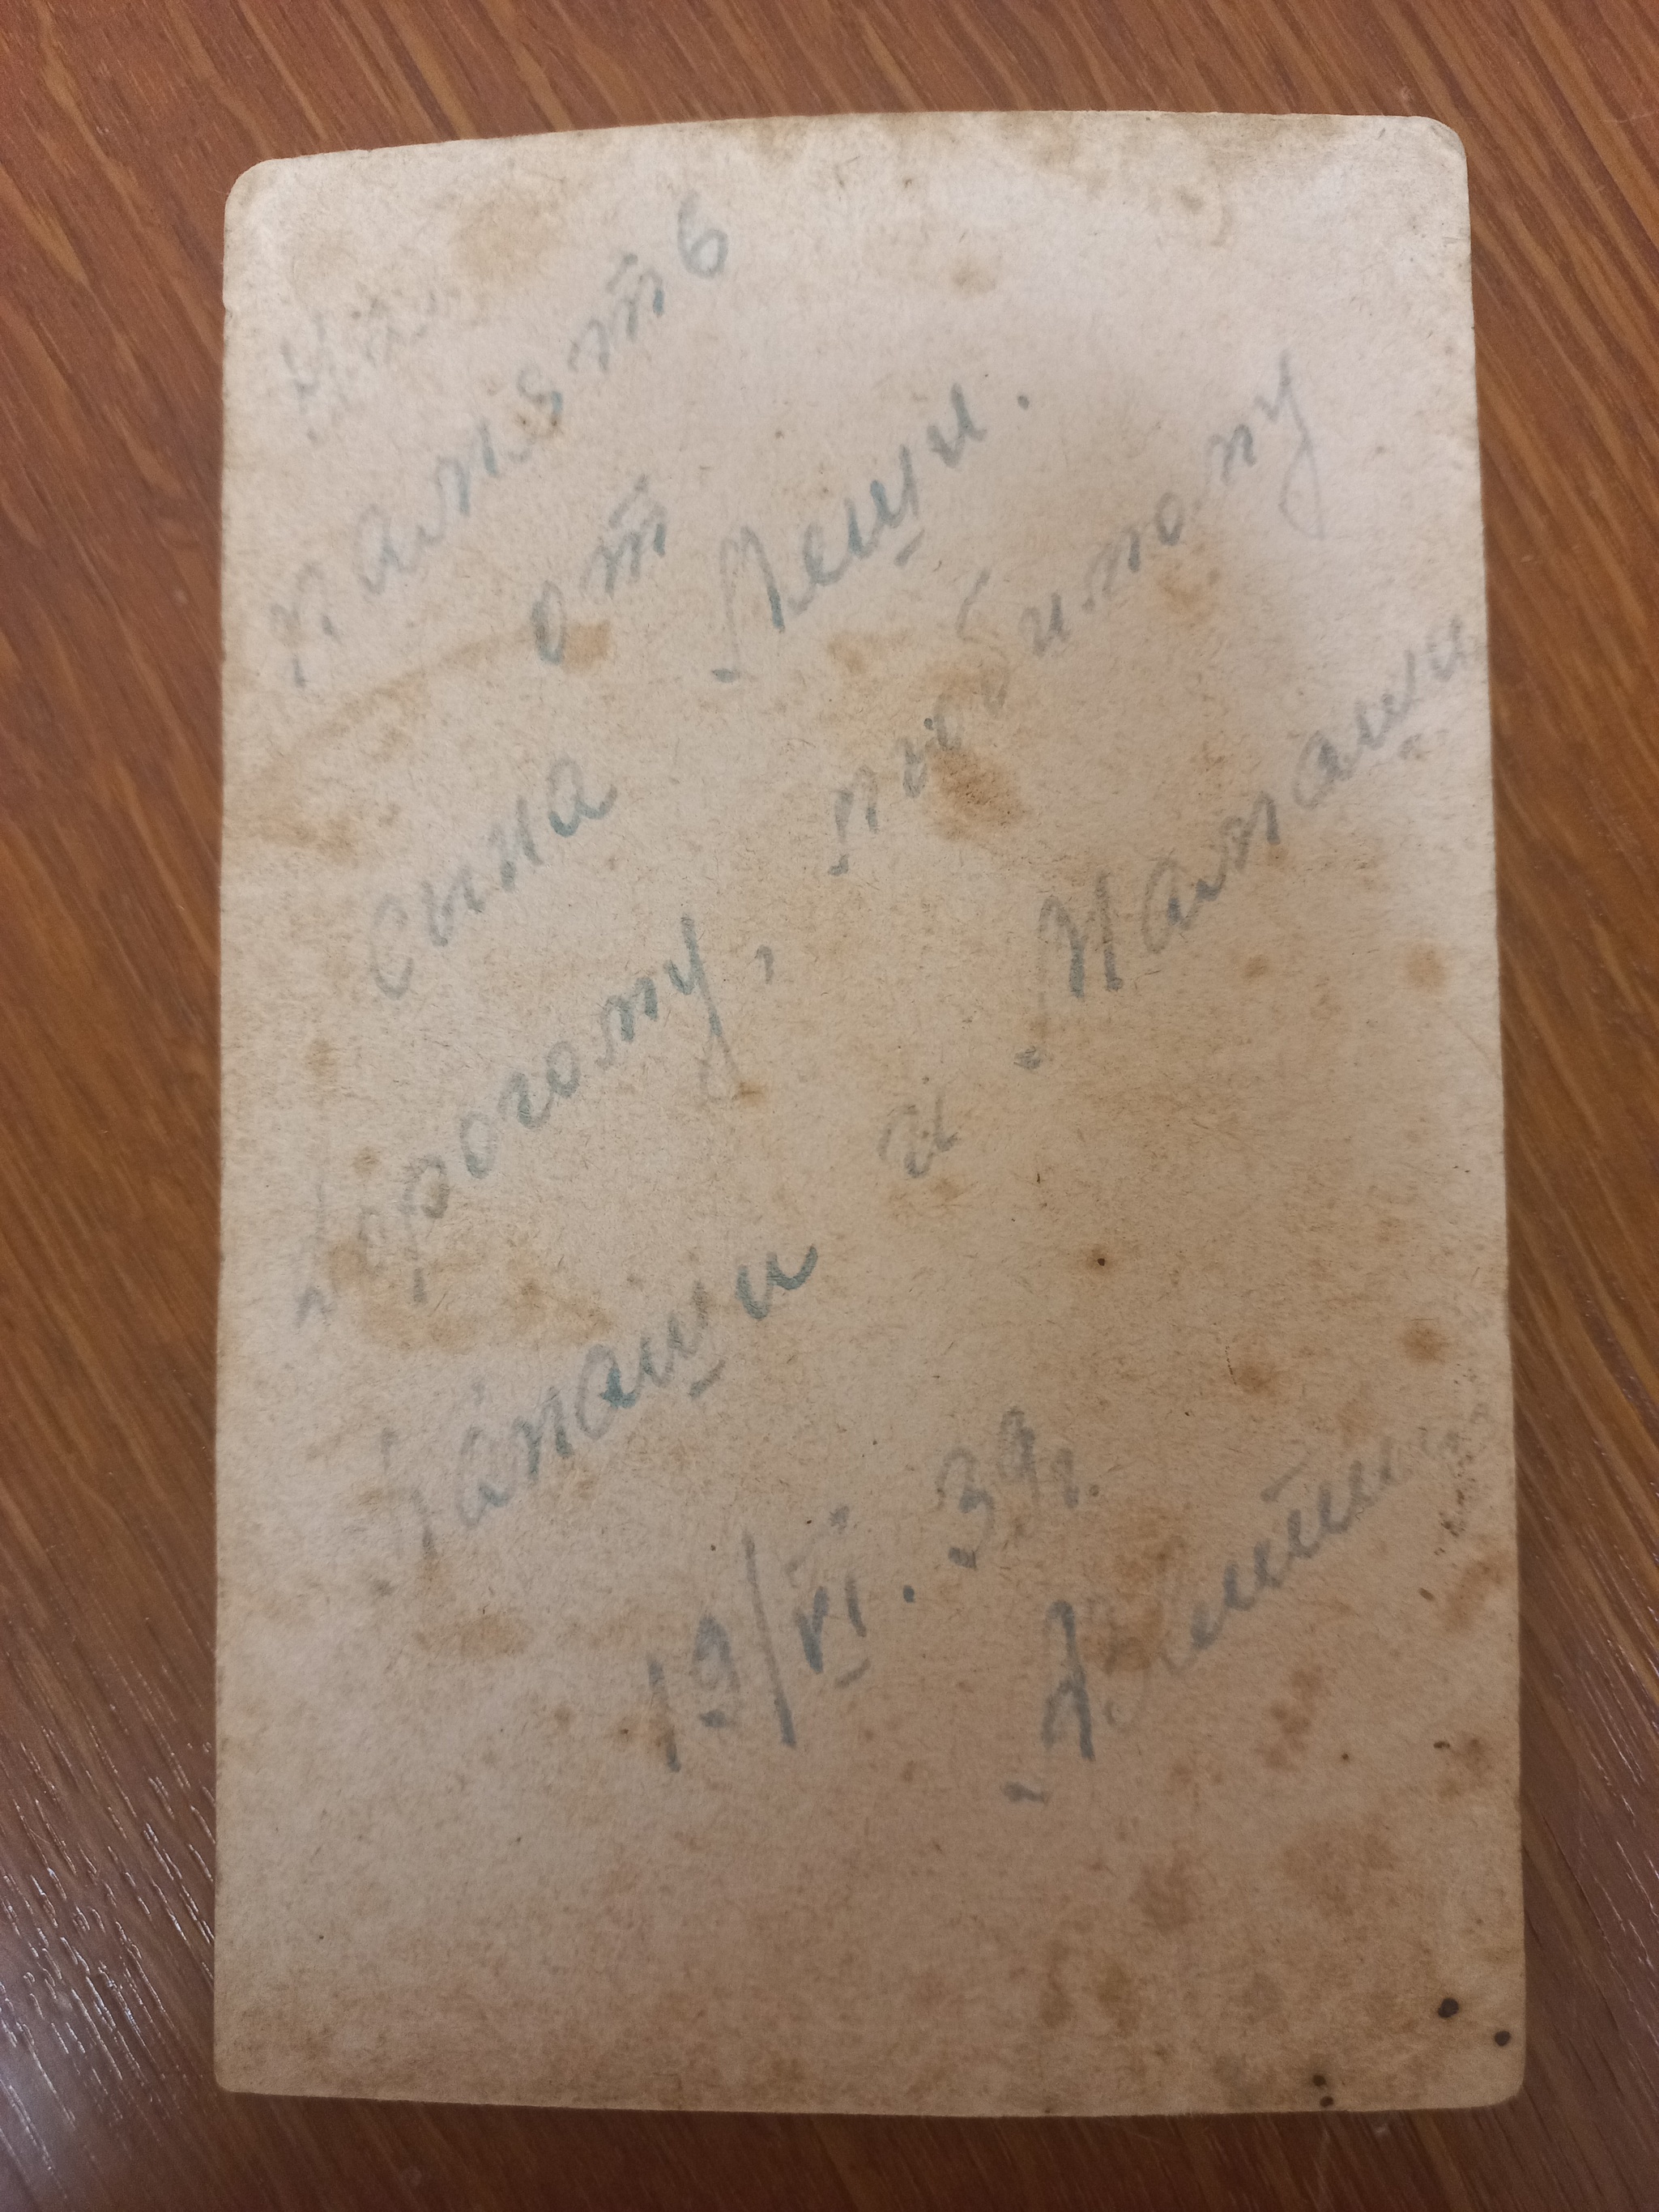 На
память
от
сына Леши.
Дорогому, любимому
папаши и Мамаши
19/VI.39г.